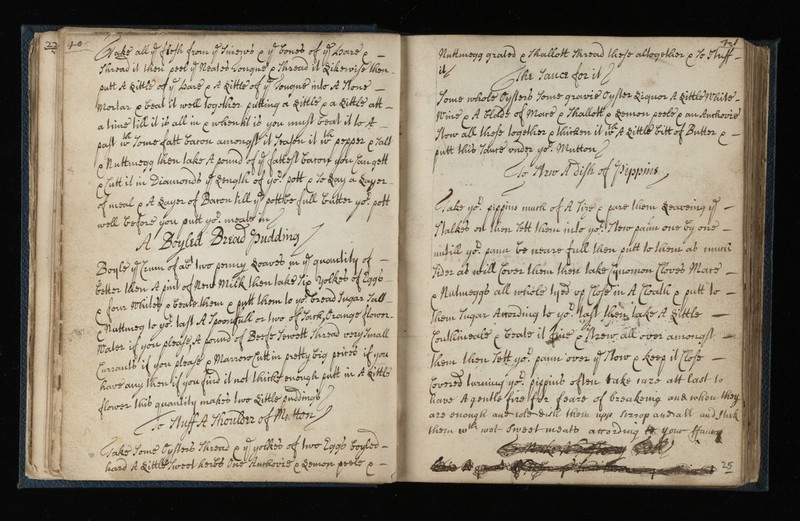 22 40
Take all yͤ flesh from yͤ sinews & yͤ bones of yͤ Hare & —
shread it then peel yͤ Neates Tongue & shread it Likerwise then
putt A Little of yͤ Hare & A Little of yͤ Tongue into A stone —
Mortar & beat it well together putting a Little & a Little att —
a time till it is all in & when it is you must beat it to A —
past wᵗʰ some fatt bacon amongst it season it wᵗʰ pepper & salt
& Nuttmegg then take A pound of yͤ fattest bacon you can gett
& Cutt it in Diamonds yͤ Length of yoʳ pott & so Lay a Layer —
of meat & A Layer of Bacon till yͤ pott be full butter yoʳ pott
well before you putt yoʳ meate in
A Boyled Bread Pudding
Boyle yͤ Crum of a two penny Loaves in yͤ quantity of —
better then A pint of New Milk then take six yolkes of Eggs
& four whites & beate them & putt them to yoʳ bread Sugar Salt
& Nuttmeg to yoʳ tast A spoonfull or two of Sack, Orange flower
water if you please, A pound of Beefe Sewett shread very small
Currants if you please & Marrow Cutt in pretty big peices if you
have any then if you find it not thicke enough putt in A Little
flower this quantity makes two Little puddings
To Stuff A Shoulder of Mutton
Take some Oysters shread & yͤ yolkes of two Eggs boyled —
hard A Little sweet herbs One Anchovie & Lemon peele & —
Nuttmegg grated & shallott shread these altogether & so stuff —
it
The Sauce for it
some whole Oysters some gravie Oyster Liquor A Little white —
wine & A blade of Mace & shallott & Lemon peele & an Anchovie
stow all these together & thicken it wᵗʰ A Little bitt of Butter & —
putt this sauce under yoʳ Mutton
To Stew A dish of Pippins
Take yoʳ pippins much of A size & pare them Leaveing yͤ —
stalkes on then sett them into yoʳ stew pann one by one —
untill yoʳ pann be neare full then putt to them as much
sider as will Cover them then take Cynomon Cloves Mace —
& Nutmeggs all whole tyed up Close in A Cloath & putt to —
them Sugar According to yoʳ tast then take A Little —
Coutchineale & beate it fine & strew all over amongst —
them then sett yoʳ pann over yͤ stow & keep it Close —
Covered turning yoʳ pippins often take care att last to
have A gentle fire for feare of breakeing and when they
are enough and cold dish them upp sirrop and all and stick
them wᵗʰ wet sweet meats according to your ffancy
25